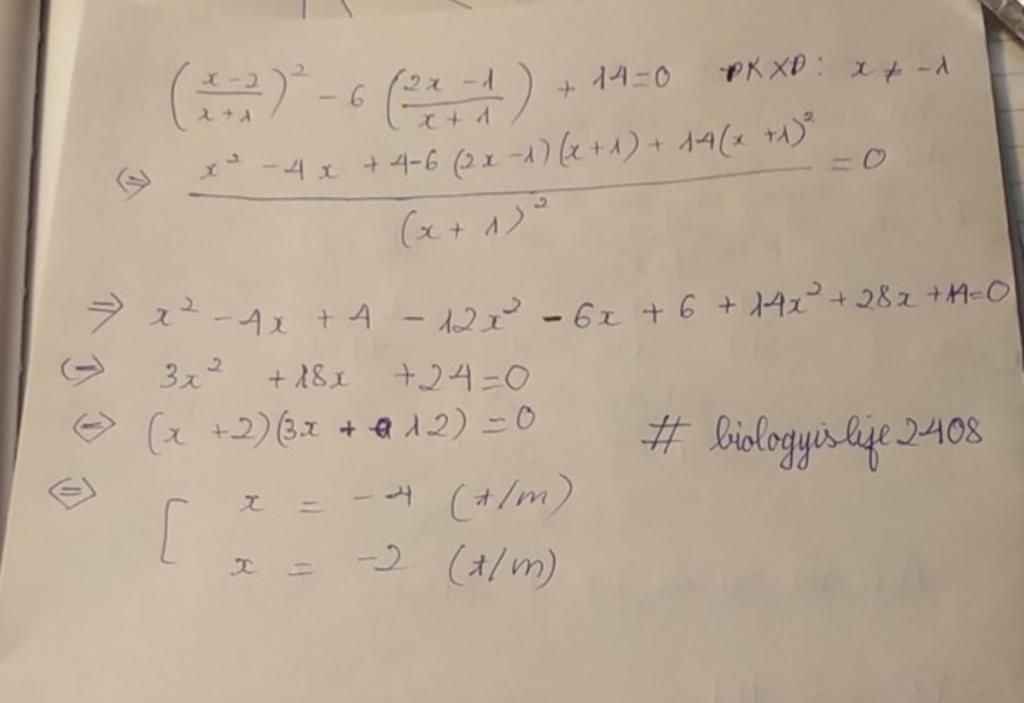 (x-2/x+1)² - 6 (2x-1/x+1) + 14=0 ĐKXĐ: x ≠ -1
⇔ x² - 4x + 4-6 (2x-1)(x+1) + 14(x+1)² / (x+1)² = 0
⇒ x² - 4x + 4 - 12x² - 6x + 6 + 14x² + 28x + 14=0
⇔ 3x² + 18x + 24=0
⇔ (x+2)(3x + 12) = 0
# biologyislife2408
⇔ [ x = -4 (t/m)
x = -2 (t/m)